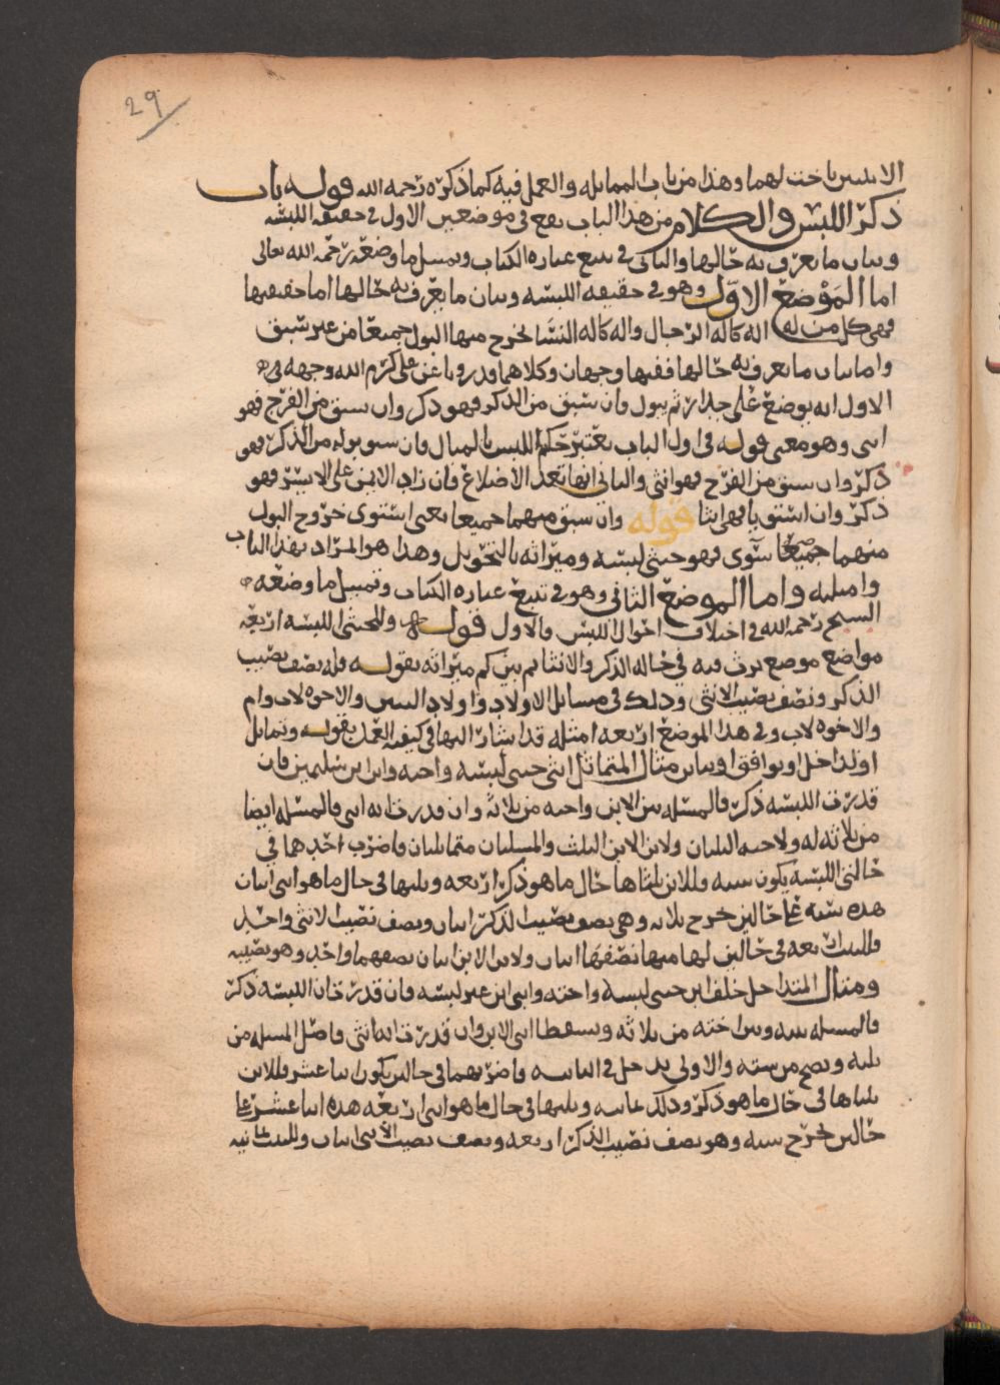 29
الابنتين باخت لهما وهذا من باب المماثله والعمل فيه كما ذكره رحمه الله قوله باب
ذكر اللبس والكلام من هذا الباب يقع في موضعين الاول في حقيقه اللبسه
وبيان ما يعرف به حالها والثاني في تتبع عباره الكتاب وتمثيل ما وضعه رحمه الله تعالى
اما الموضع الاول وهو في حقيقه اللبسه وبيان ما يعرف به حالها اما حقيقتها
فهي كل من له اله كاله الرجال واله كاله النسا يخرج منهما البول جميعا من غير سبق
واما بيان ما يعرف به حالها ففيها وجهان وكلاهما قد رويا عن علي كرم الله وجهه في
الاول انه يوضع على جدار ثم يبول فان سبق من الذكر فهو ذكر وان سبق من الفرج فهو
انثى وهو معنى قوله في اول الباب يعتبر حكم اللبس بالمبال فان سبق بوله من الذكر فهو
ذكر وان سبق من الفرج فهو انثى والثاني انها تعد الاضلاع فان زاد الايمن على الايسر فهو
ذكر وان استويا فهي انثا قوله وان سبق منهما جميعا يعني استوى خروج البول
منهما جميعا سوى فهو خنثى لبسه وميراثه بالتحويل وهذا هو المراد بهذا الباب
وامثلته واما الموضع الثاني وهو في تتبع عباره الكتاب وتمثيل ما وضعه
الشيخ رحمه الله في اختلاف احوال اللبس والاول قوله وللخنثى اللبسه اربعه
مواضع موضع يرث فيه في حاله الذكر والانثا ثم بين كم ميراثه بقوله فله نصف نصيب
الذكر ونصف نصيب الانثى وذلك في مسايل الاولاد واولاد البنين والاخوه لاب وام
والاخوه لاب وفي هذا الموضع اربعه امثله قد اشار اليها في كيفيه العمل بقوله وتماثل
او تداخل او توافق او تباين مثال المتماثل انثى خنثى لبسه واحده وابن ابن سليمين فان
قدرت اللبسه ذكر فالمسله بين الابن واحده من ثلاثه وان قدرت انه انثى فالمسله ايضا
من ثلاثه له ولاخته الثلثان ولابن الابن الثلث والمسلتان متماثلتان فاضرب احدهما في
حالتي اللبسه يكون سته فللابن ثلثاها حال ما هو ذكر اربعه وثلثها في حال ما هو انثى اثنان
هذه سته على حالين خرج ثلاثه وهي نصف نصيب الذكر اثنان ونصف نصيب الانثى واحد
وللبنت اربعه في حالين لها منها نصفها اثنان ولابن الابن اثنان نصفهما واحد وهو نصيبه
ومثال المتداخل خلف ابن خنثى لبسه واخته وابني ابن غير لبسه فان قدرت ان اللبسه ذكر
فالمسله بينه وبين اخته من ثلاثه ويسقط ابني الابن وان قدرت انه انثى فاصل المسله من
ثلثه وتصح من سته والاولى يدخل في الثانيه فاضربهما في حالين يكون اثنا عشر فللابن
ثلثاها في حال ما هو ذكر وذلك ثمانيه وثلثها في حال ما هو انثى اربعه هذه اثنا عشر على
حالين يخرج سته وهو نصف نصيب الذكر اربعه ونصف نصيب الانثى اثنان وللبنت ثمانيه